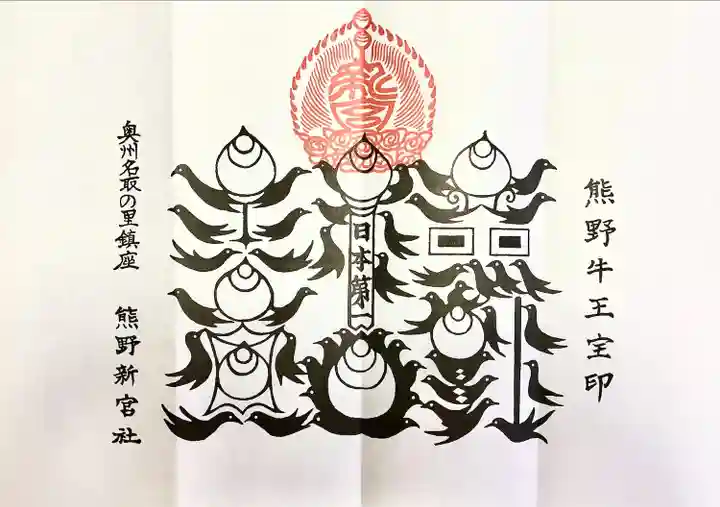 熊野牛王宝印
日本第一
奥州名取の里鎮座
熊野新宮社